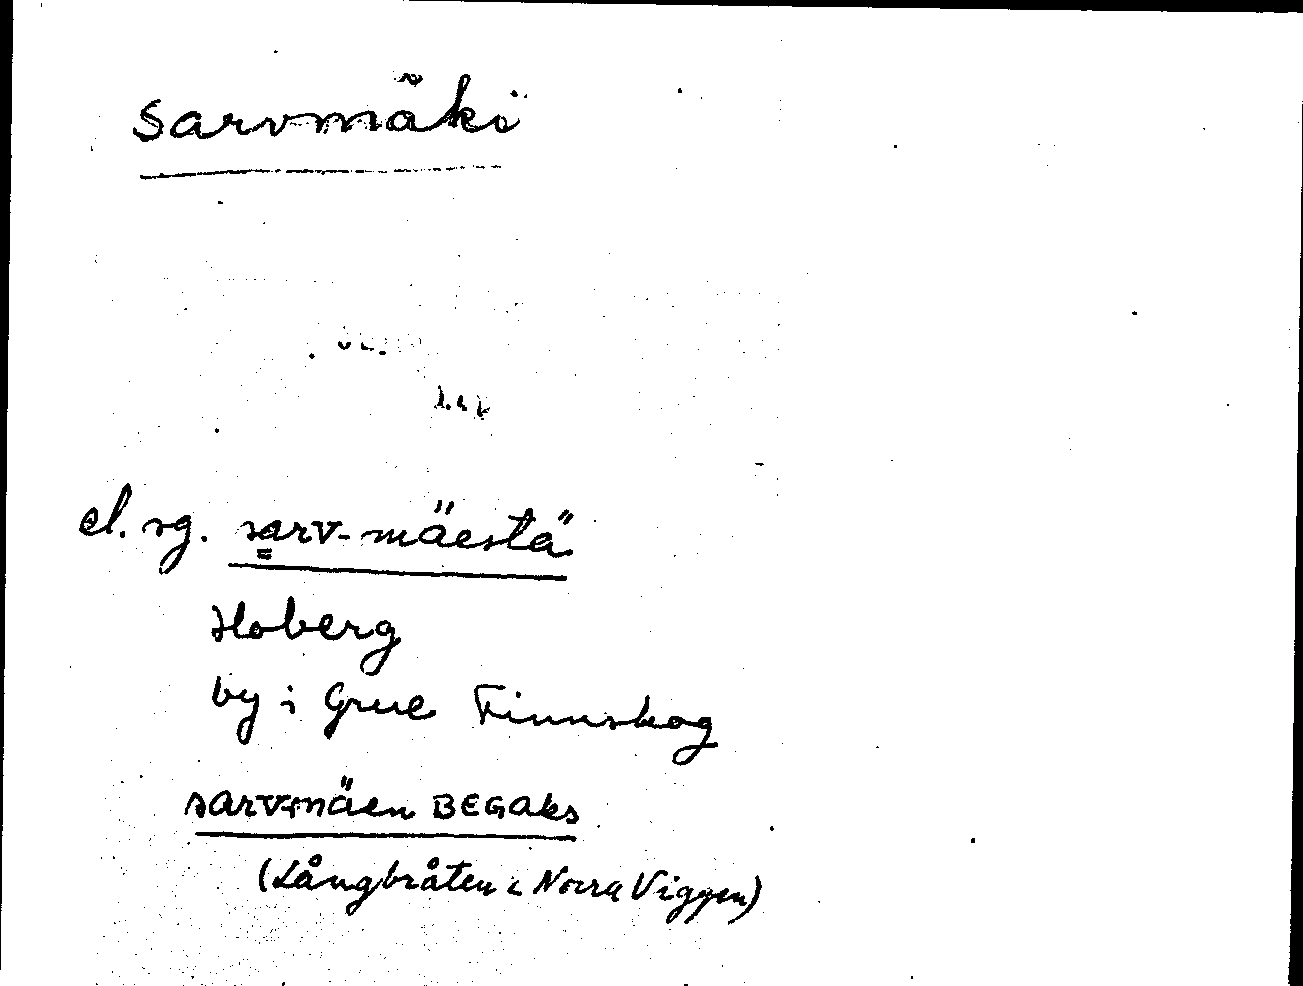 sarvmäki
el. sg. sarv-mäestä
Hoberg
by i Grue Finnskog
sarvmäen BEGAks
(Långbråten i Norra Viggen)